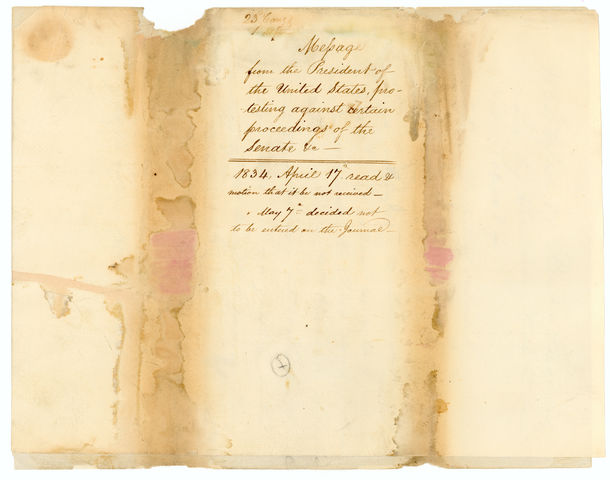 23 Cong
1 Sess
Message
from the President of
the United States, pro-
testing against certain
proceedings of the
Senate &c —
1834, April 17. read &
motion that it be not received —
May 7th decided not
to be entered on the Journal —